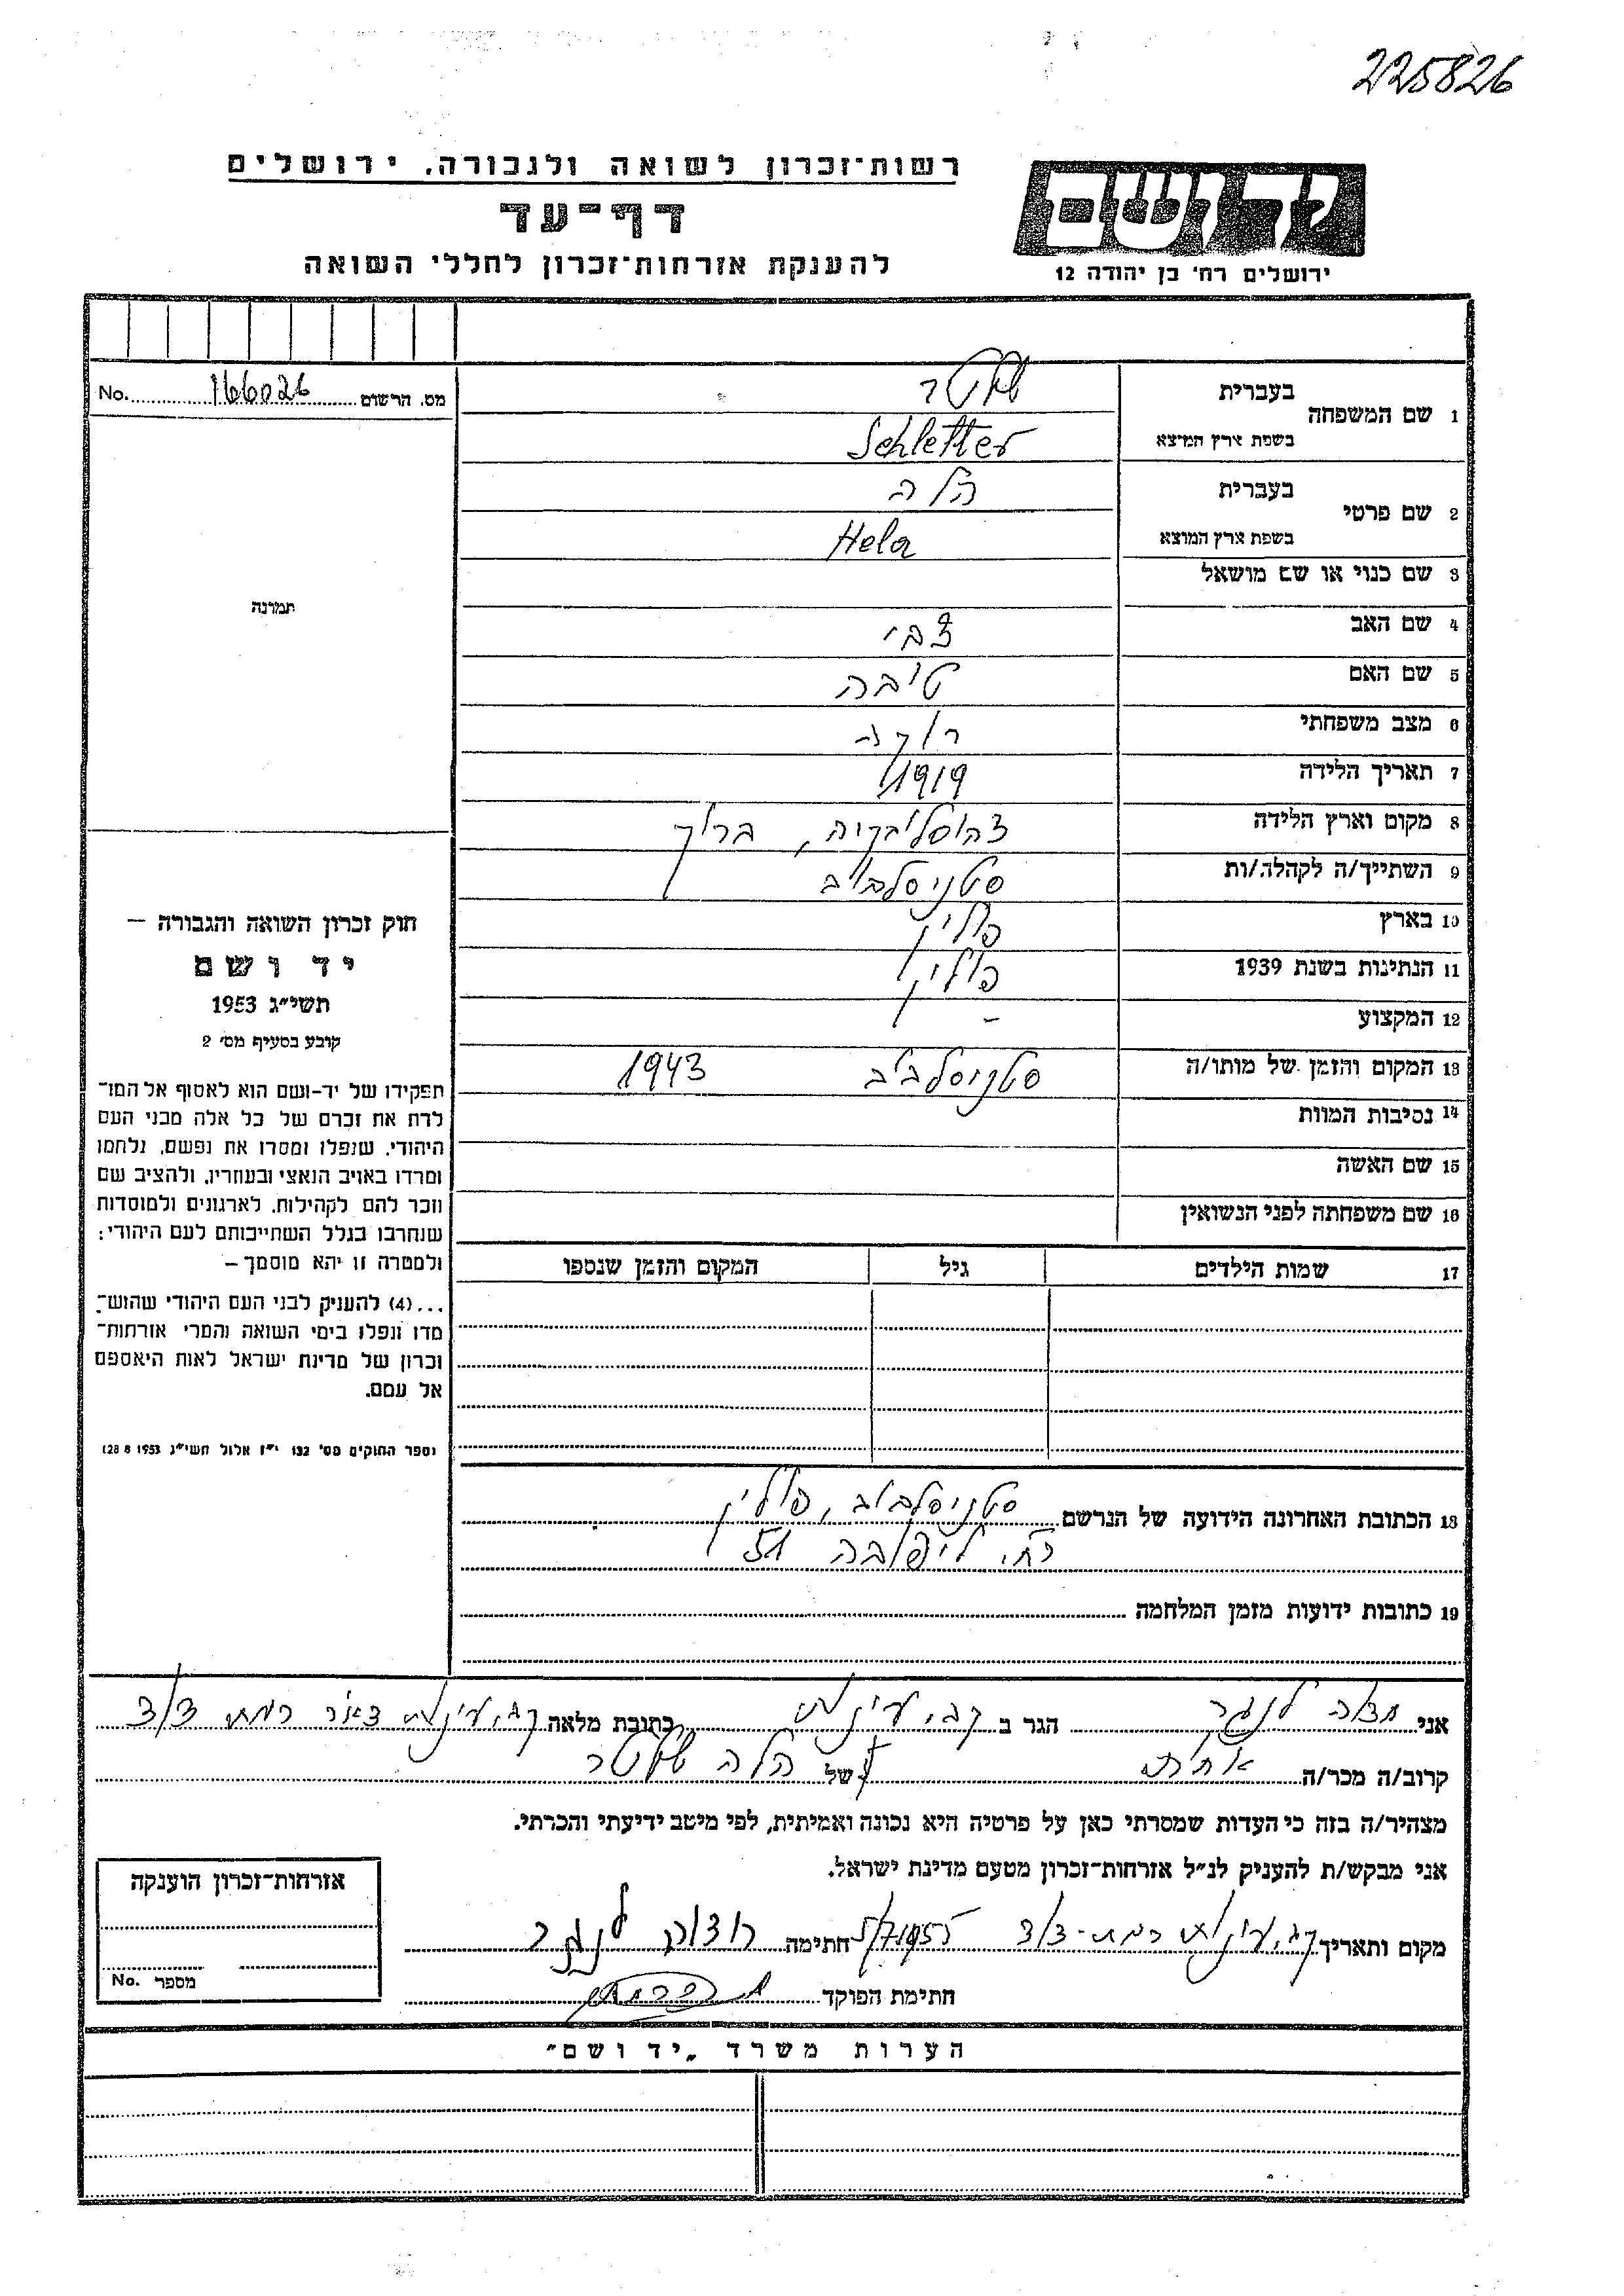 225826
רשות־זכרון לשואה ולגבורה. ירושלים
דף־עד
להענקת אזרחות־זכרון לחללי השואה
יד ושם
ירושלים רח׳ בן יהודה 12
מס. הרשום 166026 No.
תמונה
חוק זכרון השואה והגבורה –
יד ושם
תשי״ג 1953
קובע בסעיף מס׳ 2
תפקידו של יד-ושם הוא לאסוף אל המו־
לדת את זכרם של כל אלה מבני העם
היהודי. שנפלו ומסרו את נפשם. נלחמו
ומרדו באויב הנאצי ובעוזריו. ולהציב שם
וזכר להם לקהילות. לארגונים ולמוסדות
שנחרבו בגלל השתייכותם לעם היהודי:
ולמטרה זו יהא מוסמך –
...(4) להעניק לבני העם היהודי שהוש־
מדו ונפלו בימי השואה והמרי אזרחות־
זכרון של מדינת ישראל לאות היאספם
אל עמם.
וספר החוקים מס׳ 132 י״ז אלול תשי״ג 28 8 1953)
1 שם המשפחה בעברית שלטר
בשפת ארץ המוצא Schletter
2 שם פרטי בעברית הלה
בשפת ארץ המוצא Hela
3 שם כנוי או שם מושאל
4 שם האב צבי
5 שם האם טובה
6 מצב משפחתי רוקה
7 תאריך הלידה 1919
8 מקום וארץ הלידה צ׳כוסלובקיה,
9 השתייך/ה לקהלה/ות סטניסלבוב
10 בארץ פולין
11 הנתינות בשנת 1939 פולין
12 המקצוע –
13 המקום והזמן של מותו/ה סטניסלבוב 1943
14 נסיבות המוות
15 שם האשה
16 שם משפחתה לפני הנשואין
17 שמות הילדים גיל המקום והזמן שנספו
18 הכתובת האחרונה הידועה של הנרשם סטניסלבוב, פולין
רח׳ ליפובה 51
19 כתובות ידועות מזמן המלחמה
אני לנגר הגר ב קב. עינת כתובת מלאה קב. עינת דאר רמת
קרוב/ה מכר/ה אחות של הלה שלטר
מצהיר/ה בזה כי העדות שמסרתי כאן על פרטיה היא נכונה ואמיתית, לפי מיטב ידיעתי והכרתי.
אני מבקש/ת להעניק לנ״ל אזרחות־זכרון מטעם מדינת ישראל.
מקום ותאריך קב. עינת רמת- 5/7/1955 חתימה לנגר
חתימת הפוקד
אזרחות־זכרון הוענקה
מספר No.
הערות משרד „יד ושם״